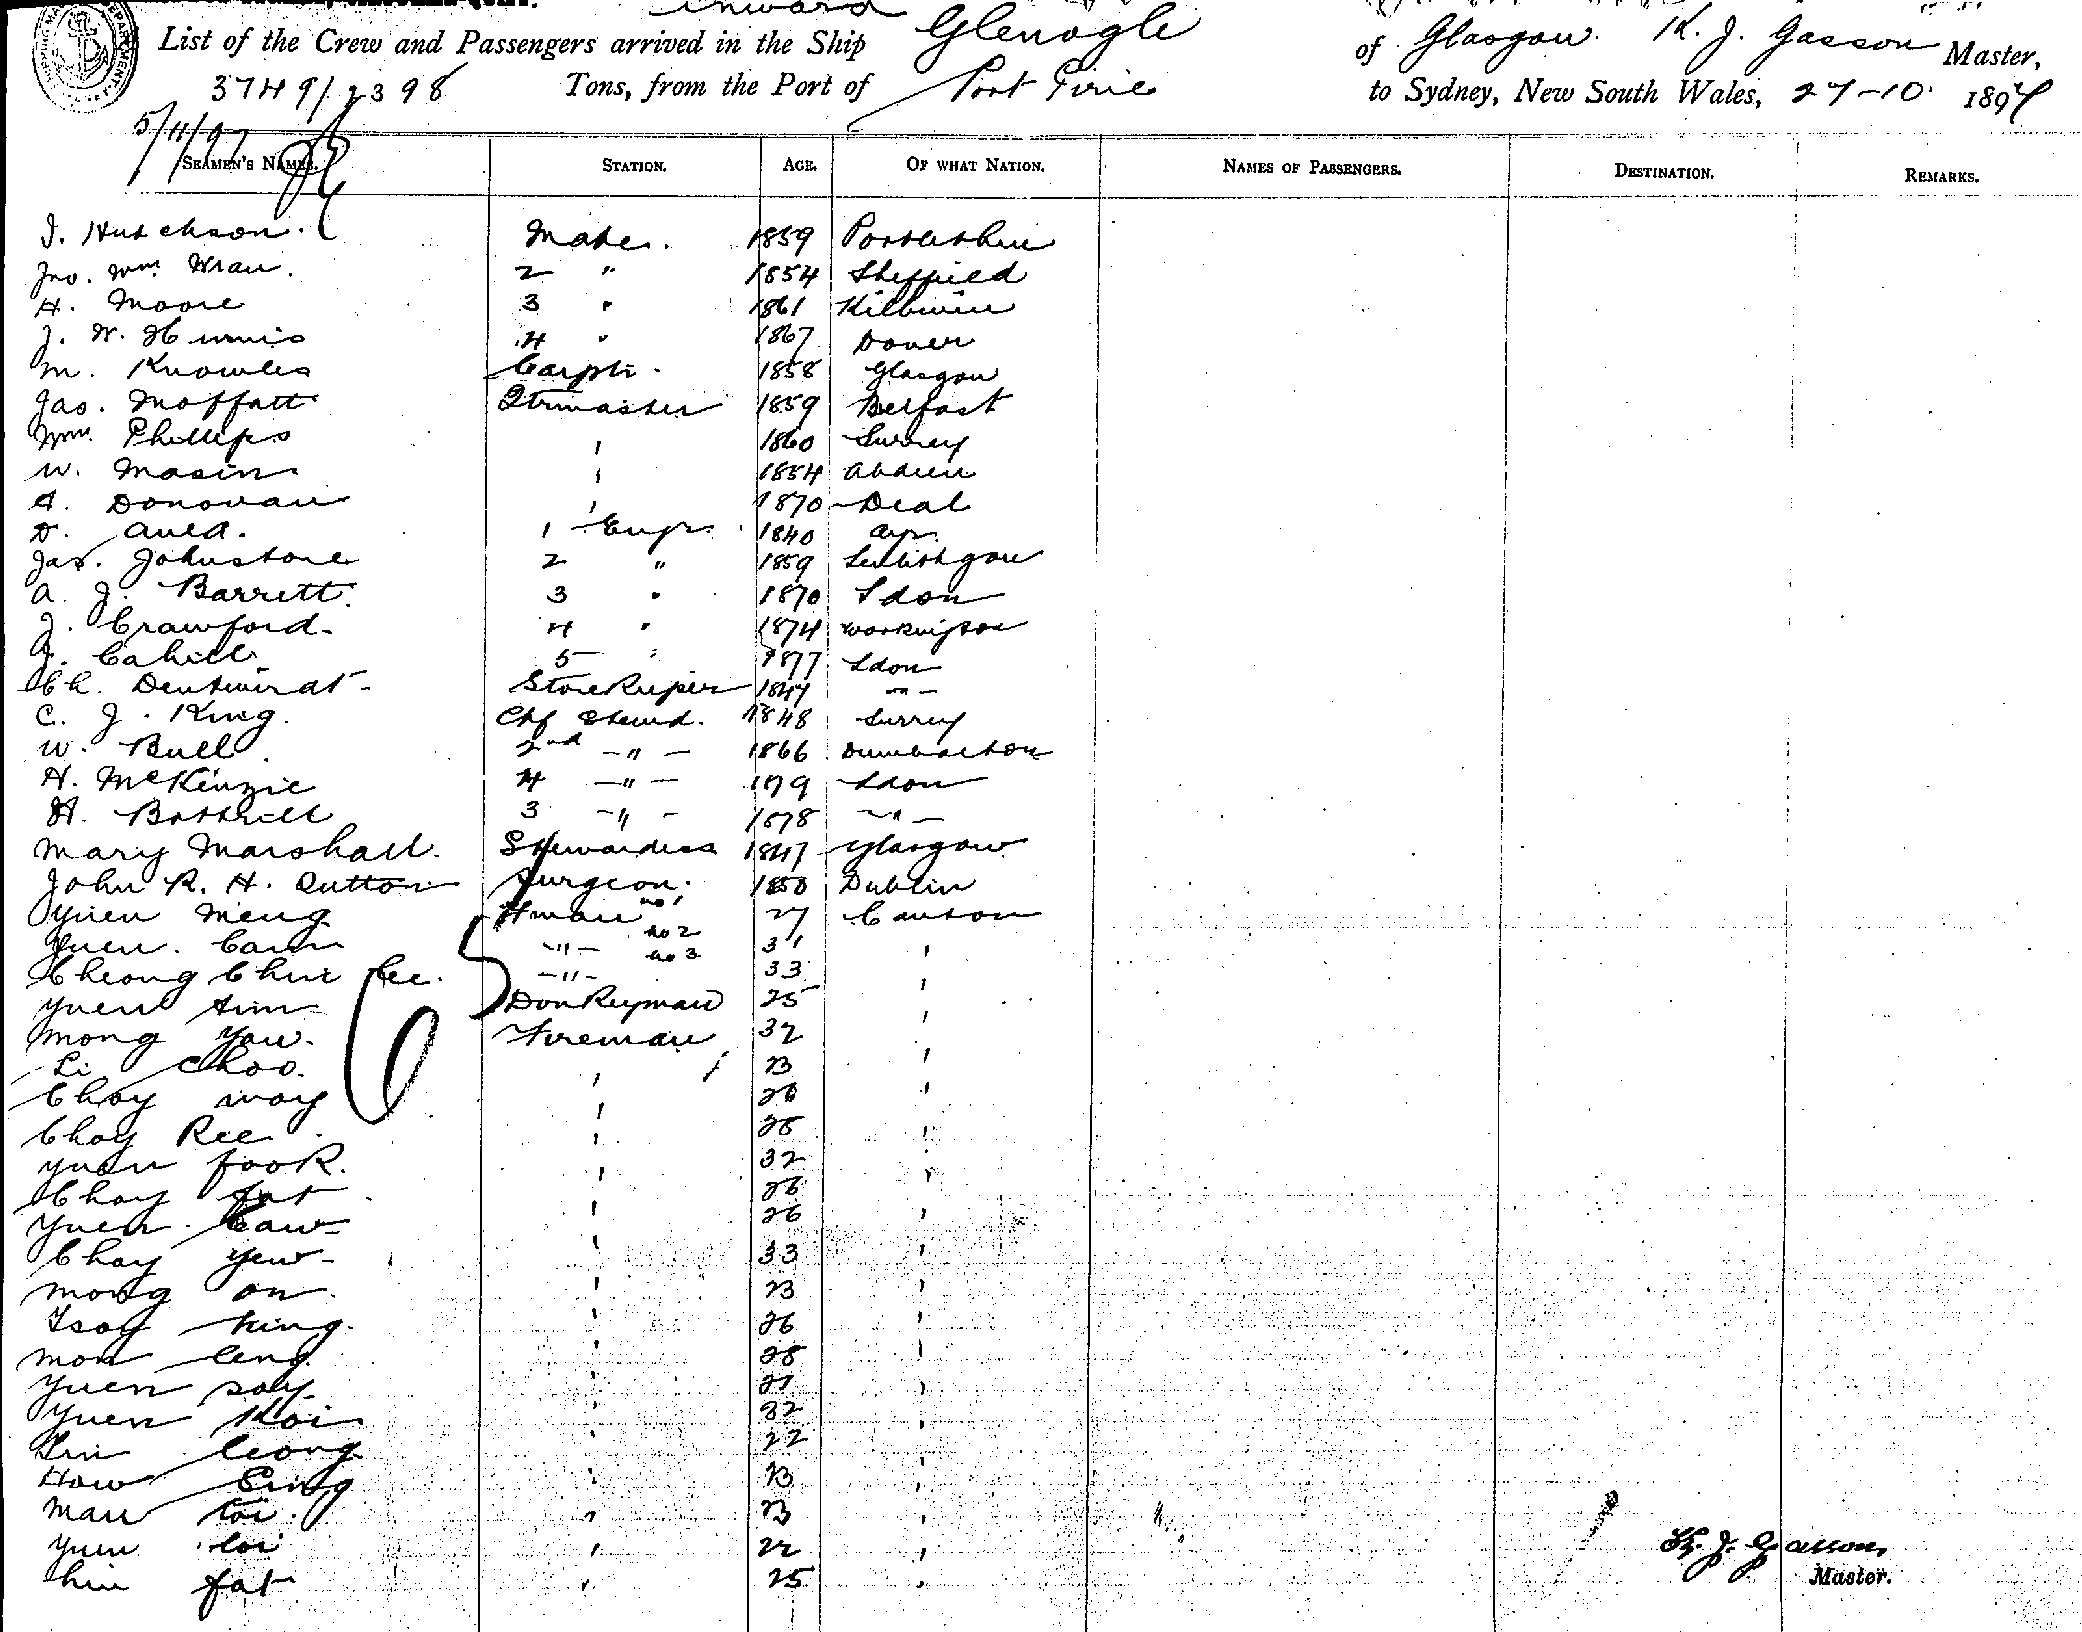 inward
List of the Crew and Passengers arrived in the Ship Glenogle of Glasgow. K. J. Gasson Master,
3749/2398 Tons, from the Port of Port Pirie to Sydney, New South Wales, 27-10 1897
5/11/97
SEAMEN'S NAMES. STATION. AGE. OF WHAT NATION. NAMES OF PASSENGERS. DESTINATION. REMARKS.
J. Hutchison. Mate. 1859
Jno. Wm. Wran. 2 " 1854 Sheffield
H. Moore 3 " 1861 Kilwinin
J. W. 4 " 1867 Dover
M. Knowles Carptr. 1858 Glasgow
Jas. Moffatt Qtrmaster 1859 Belfast
Wm. Phillips " 1860 Surrey
W. Masin " 1854
A. Donovan " 1870 Deal
D. Auld. 1 Engr. 1840 Ayr.
Jas. Johnstone 2 " 1859 Linlithgow
A. J. Barrett. 3 " 1870 Ldon
J. Crawford. 4 " 1874 Workington
J. Cahill 5 " 1877 Ldon
Ch. Storekeeper 1847 - " -
C. J. King. Chf Stewd. 1848 Surrey
W. Bull. 2nd - " - 1866 Dumbarton
H. McKenzie 4 - " - 1879 Ldon
H. Bothrill 3 - " - 1878 - " -
Mary Marshall. Stewardess 1847 Glasgow
John R. H. Sutton Surgeon. 1850 Dublin
Yuen Meng Fman no 1 27 Canton
Yuen. Cann - " - no 2 31 "
Cheong Chui Lee. - " - no 3 33 "
Yuen Sim Donkeyman 25 "
Mong You. Fireman 32 "
Li Choo. " 23 "
Choy Moy " 26 "
Choy Kee " 28 "
Yuen fook. " 32 "
Choy fat " 26 "
Yuen Caw " 26 "
Choy Yew " 33 "
Mong on. " 23 "
Tsoy King. " 26 "
Mon Leng. " 28 "
Yuen Soy. " 27 "
Yuen Koi " 32 "
Lin Leong " 22 "
How Eing " 23 "
Man Toi. " 23 "
Yuen Loi " 22 "
fat " 25 "
K. J. Gasson,
Master.